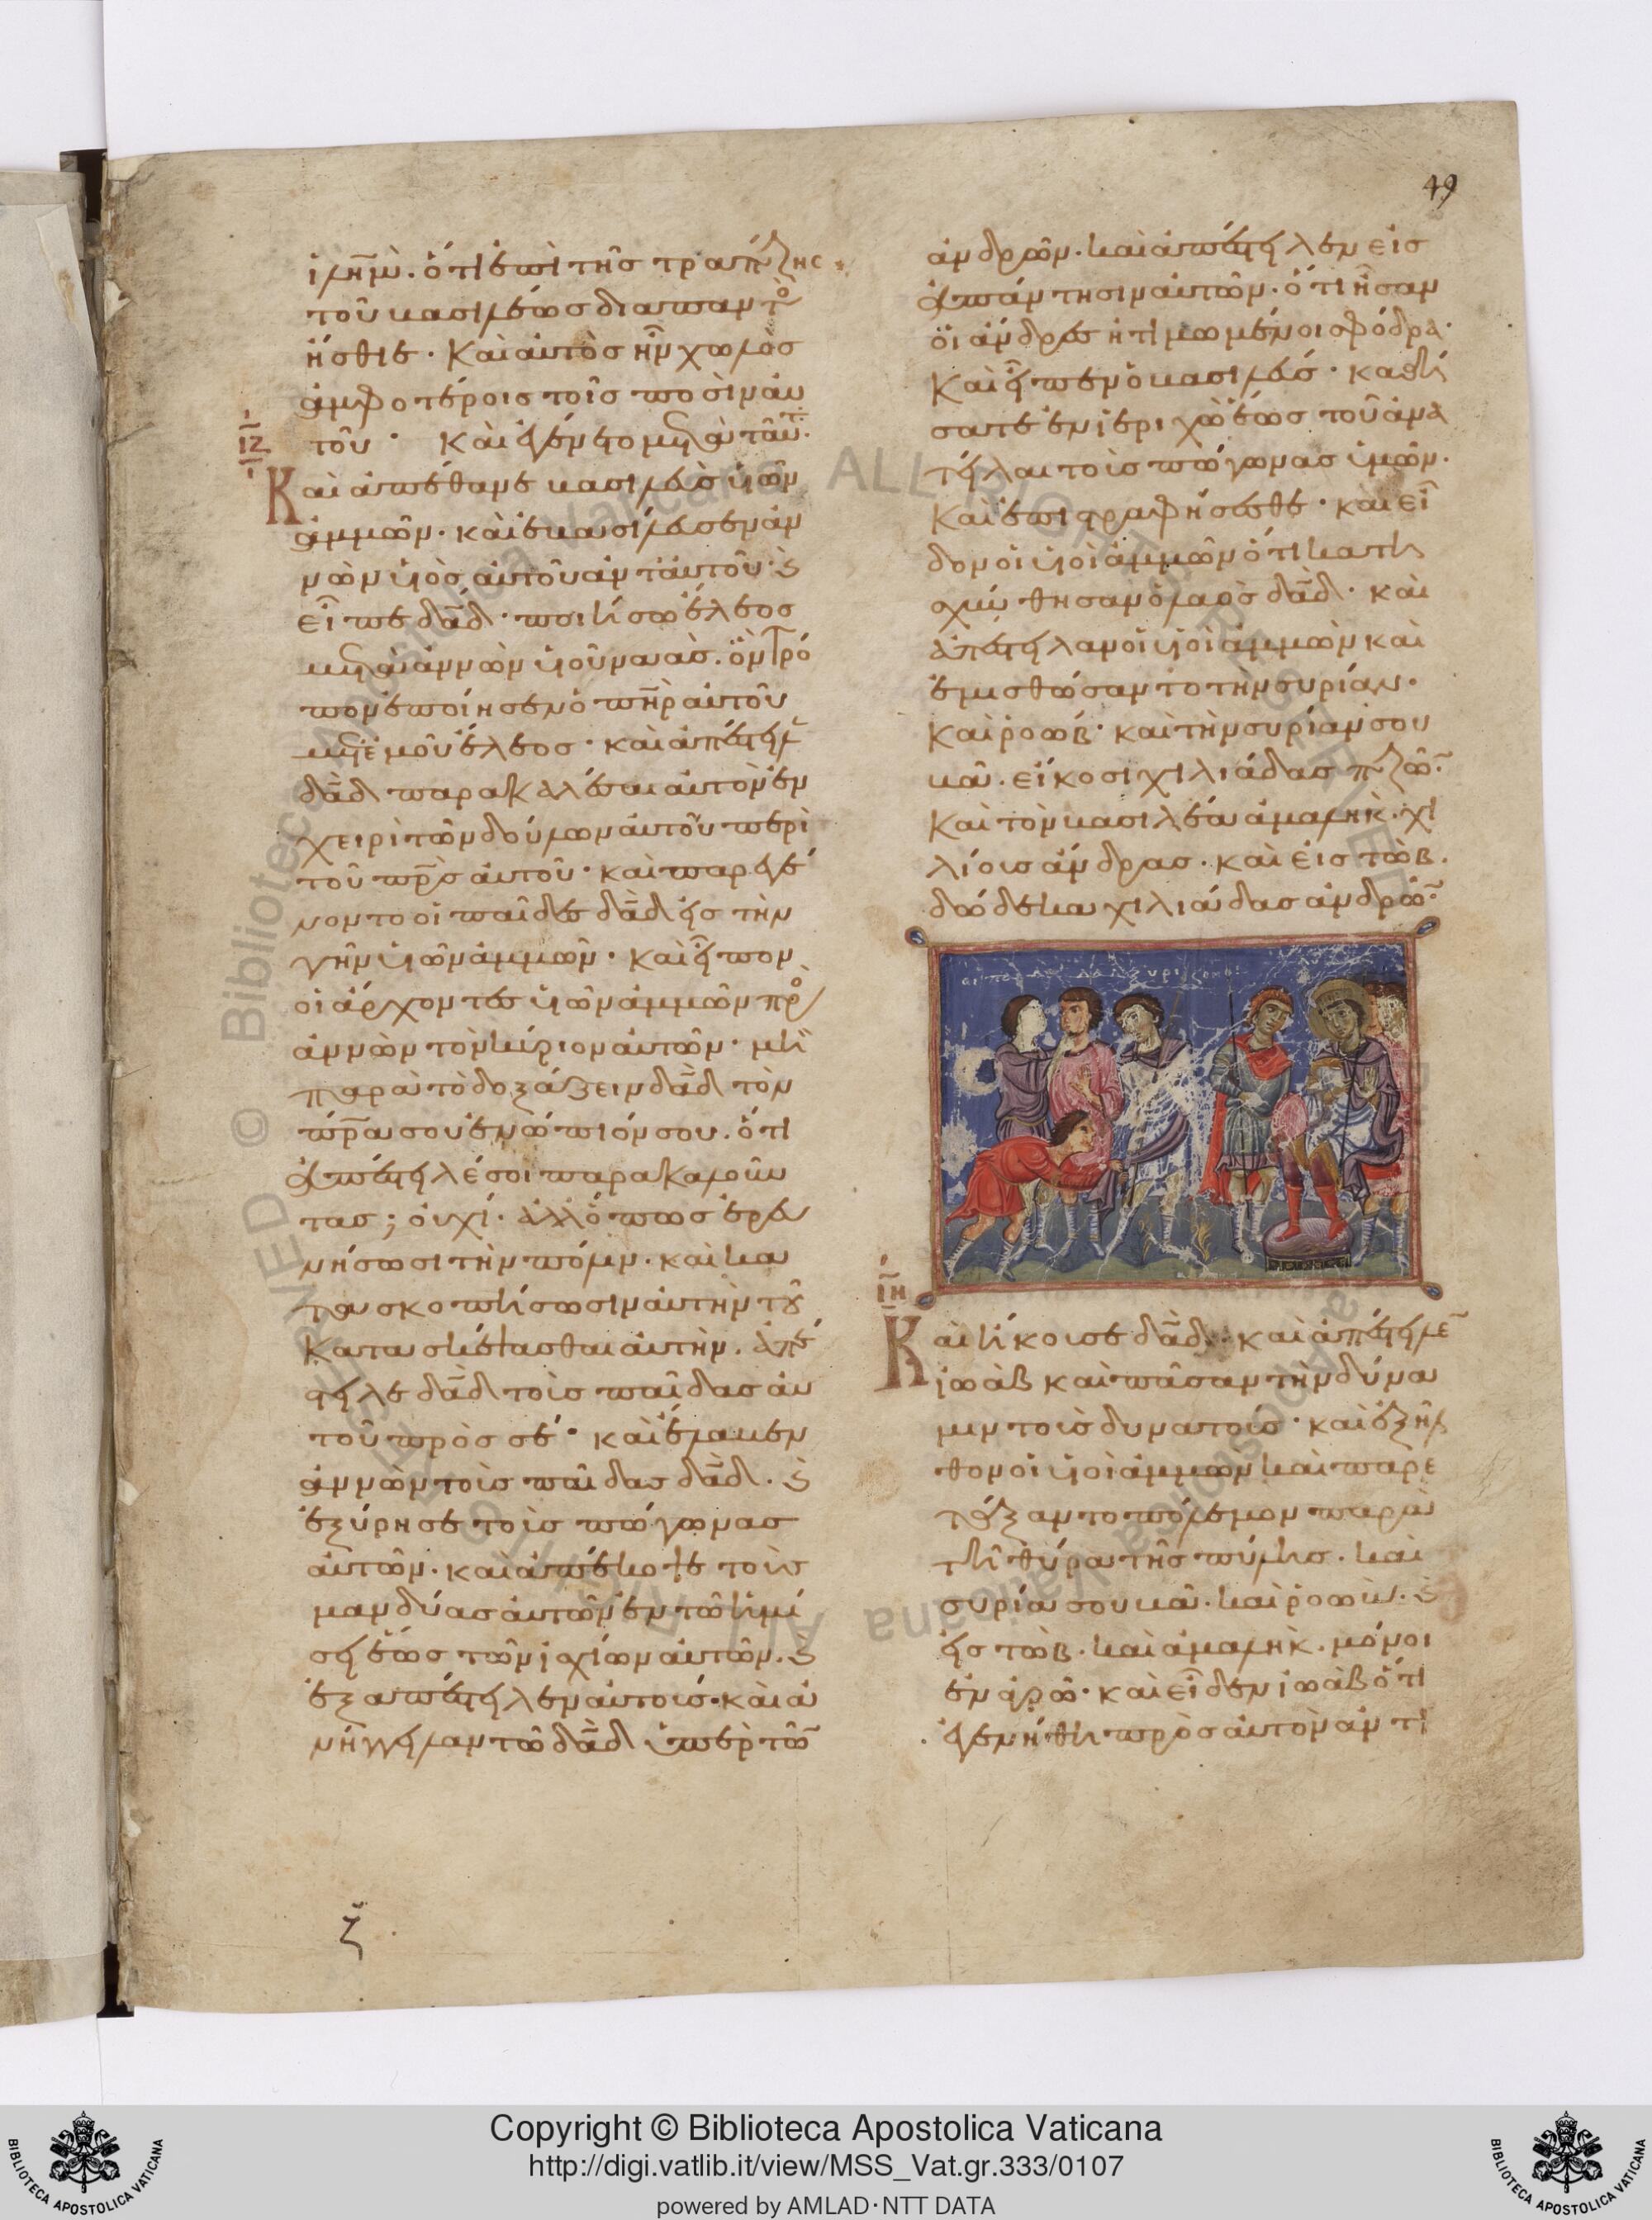 49
ἱλῆμ. ὅτι ἐπὶ τῆς τραπέζης
τοῦ βασιλέως διαπαντὸ
ἤσθιε. Καὶ αὐτὸς ἦν χωλὸς
ἀμφοτέροις τοῖς ποσὶν αὐ
τοῦ. Καὶ ἐγένετο μετὰ ταῦτ.
ΙΖ
Καὶ ἀπέθανε βασιλεὺς υἱῶν
ἀμμῶν. καὶ ἐβασίλευσεν ἀν
νὼν υἱὸς αὐτοῦ ἀντ' αὐτοῦ. ϛ
εἶπε δᾱδ. ποιήσω ἔλεος
μετὰ ἀννὼν υἱοῦ ναάς. ὃν τρό
πον ἐποίησεν ὁ πηρ αὐτοῦ
μετ' ἐμοῦ ἔλεος. καὶ ἀπέστειλ
δᾱδ παρακαλέσαι αὐτὸν ἐν
χειρὶ τῶν δούλων αὐτοῦ περὶ
τοῦ πρς αὐτοῦ. καὶ παρεγέ
νοντο οἱ παῖδες δᾱδ εἰς τὴν
γῆν υἱῶν ἀμμῶν. καὶ εἶπον
οἱ ἄρχοντες υἱῶν ἀμμῶν πρὸ
ἀννὼν τὸν κύριον αὐτῶν. μὴ
παρὰ τὸ δοξάζειν δᾱδ τὸν
πρα σου ἐνώπιόν σου. ὅτι
ἀπέστειλέ σοι παρακαλοῦν
τας; οὐχί. ἀλλ' ὅπως ἐρευ
νήσωσι τὴν πόλιν. καὶ κα
τασκοπήσωσιν αὐτὴν τοῦ
κατασκέψασθαι αὐτὴν. ἀπέ
στειλε δᾱδ τοὺς παῖδας αὐ
τοῦ πρὸς σέ. καὶ ἔλαβεν
ἀννὼν τοὺς παῖδας δᾱδ. ϛ
ἐξύρησε τοὺς πώγωνας
αὐτῶν. καὶ ἀπέκοψε τοὺς
μανδύας αὐτῶν ἐν τῶ ἡμί
σει ἕως τῶν ἰσχίων αὐτῶν. ϛ
ἐξαπέστειλεν αὐτούς. καὶ ἀ
νήγγειλαν τῶ δᾱδ ὑπὲρ τῶ
ζ
ἀνδρῶν. καὶ ἀπέστειλεν εἰς
ἀπάντησιν αὐτῶν. ὅτι ἦσαν
οἱ ἄνδρες ἠτιμωμένοι σφόδρα.
Καὶ εἶπεν ὁ βασιλεύς. καθή
σατε ἐν ἱεριχῶ ἕως τοῦ ἀνα
τεῖλαι τοὺς πώγωνας ὑμῶν.
Καὶ ἐπιστραφήσεσθε. καὶ εἶ
δον οἱ υἱοὶ ἀμμῶν ὅτι κατη
σχύνθησαν ὁ λαὸς δᾱδ. καὶ
ἀπέστειλαν οἱ υἱοὶ ἀμμὼν καὶ
ἐμισθώσαντο τὴν συρίαν.
Καὶ ῥοώβ. καὶ τὴν συρίαν σου
βᾶ. εἴκοσι χιλιάδας πεζῶ.
Καὶ τὸν βασιλέα ἀμαλὴκ. χι
λίους ἄνδρας. καὶ εἰς τὼβ.
δώδεκα χιλιάδας ἀνδρῶ.
ΙΗ
Καὶ ἤκουσε δᾱδ. καὶ ἀπέστειλε
ἰωὰβ καὶ πᾶσαν τὴν δύνα
μιν τοὺς δυνατούς. καὶ ἐξῆλ
θον οἱ υἱοὶ ἀμμὼν καὶ παρε
τάξαντο πόλεμον παρὰ
τῆ θύρα τῆς πύλης. καὶ
συρία σουβᾶ. καὶ ῥοὼβ. ϛ
εἰς τὼβ. καὶ ἀμαλὴκ. μόνοι
ἐν ἀγρῶ. καὶ εἶδεν ἰωὰβ ὅτι
ἐγενήθη πρὸς αὐτὸν ἀντι
Copyright © Biblioteca Apostolica Vaticana
http://digi.vatlib.it/view/MSS_Vat.gr.333/0107
powered by AMLAD·NTT DATA
BIBLIOTECA APOSTOLICA VATICANA
BIBLIOTECA APOSTOLICA VATICANA